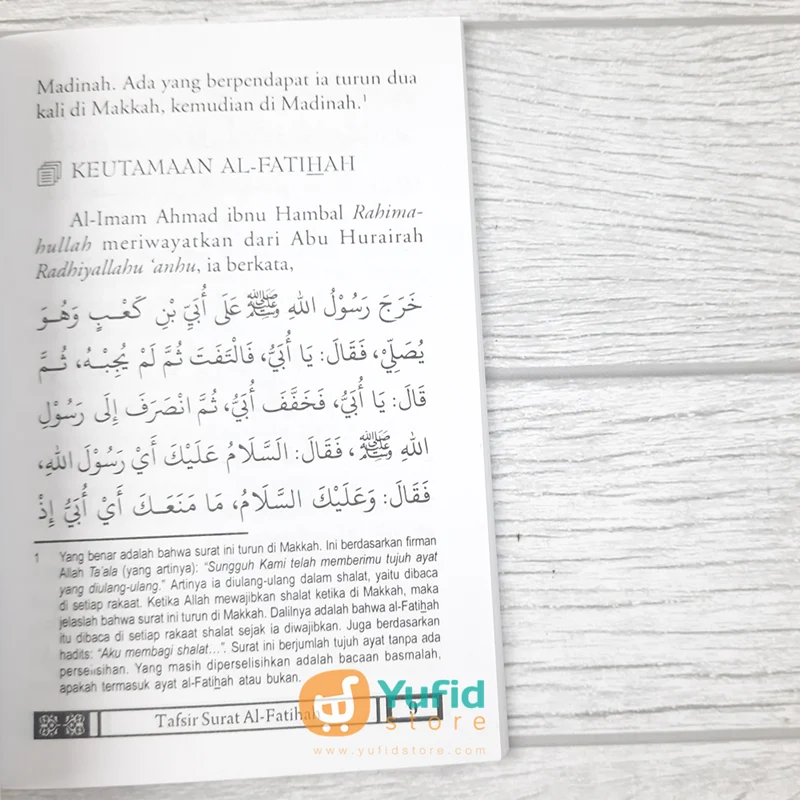 Madinah. Ada yang berpendapat ia turun dua
kali di Makkah, kemudian di Madinah.¹
KEUTAMAAN AL-FATIHAH
Al-Imam Ahmad ibnu Hambal Rahima-
hullah meriwayatkan dari Abu Hurairah
Radhiyallahu ‘anhu, ia berkata,
خَرَجَ رَسُوْلُ اللهِ ﷺ عَلَى أُبَيِّ بْنِ كَعْـبٍ وَهُـوَ
يُصَلِّيْ، فَقَالَ: يَا أُبَيُّ، فَالْتَفَتَ ثُمَّ لَمْ يُجِبْـهُ، ثُـمَّ
قَالَ: يَا أُبَيُّ، فَخَفَّفَ أُبَيُّ، ثُمَّ انْصَرَفَ إِلَى رَسُوْلِ
اللهِ ﷺ، فَقَالَ: اَلسَّلَامُ عَلَيْكَ أَيْ رَسُوْلَ اللهِ،
فَقَالَ: وَعَلَيْكَ السَّلَامُ، مَا مَنَعَـكَ أَيْ أُبَيُّ إِذْ
1 Yang benar adalah bahwa surat ini turun di Makkah. Ini berdasarkan firman
Allah Ta'ala (yang artinya): “Sungguh Kami telah memberimu tujuh ayat
yang diulang-ulang.” Artinya ia diulang-ulang dalam shalat, yaitu dibaca
di setiap rakaat. Ketika Allah mewajibkan shalat ketika di Makkah, maka
jelaslah bahwa surat ini turun di Makkah. Dalilnya adalah bahwa al-Fatihah
itu dibaca di setiap rakaat shalat sejak ia diwajibkan. Juga berdasarkan
hadits: “Aku membagi shalat...”. Surat ini berjumlah tujuh ayat tanpa ada
perselisihan. Yang masih diperselisihkan adalah bacaan basmalah,
apakah termasuk ayat al-Fatihah atau bukan.
Tafsir Surat Al-Fatihah
Yufid
store
www.yufidstore.com